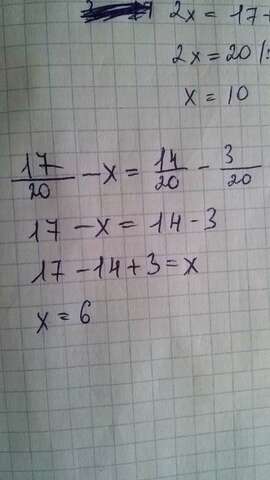 2x = 17+
2x = 20 /:
x = 10
17/20 - x = 14/20 - 3/20
17 - x = 14 - 3
17 - 14 + 3 = x
x = 6